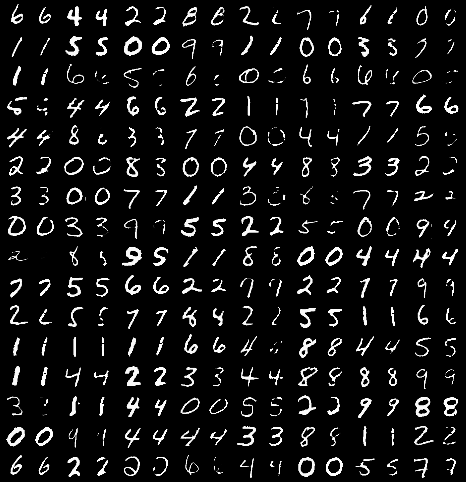 6 6 4 4 2 2 8 8 2 7 7 6 1 0 0
1 1 5 5 0 0 9 9 1 1 0 0 3 3 7 7
1 1 6 5 6 0 6 6 6 0
5 4 4 6 6 2 2 1 1 1 1 7 7 6 6
4 4 8 3 3 7 7 0 0 4 4 1 1 5
2 2 0 0 8 3 0 0 4 4 8 8 3 3 2
3 3 0 0 7 7 1 1 3 8 7 7 2 2
0 0 3 3 9 9 5 5 2 2 5 5 0 0 9 9
2 8 9 5 1 1 8 8 0 0 4 4 4 4
7 7 5 5 6 6 2 2 9 9 2 2 7 7 9 9
2 2 5 5 7 7 8 8 2 2 5 5 1 1 6 6
1 1 1 1 1 1 6 6 4 8 8 4 4 5 5
1 1 4 4 2 2 3 3 4 4 8 8 8 8 9 9
3 1 1 4 4 0 0 5 5 2 2 9 9 8 8
0 0 9 9 4 4 4 4 3 3 8 8 1 1 2 2
6 6 2 2 2 6 6 4 4 0 0 5 5 7 7